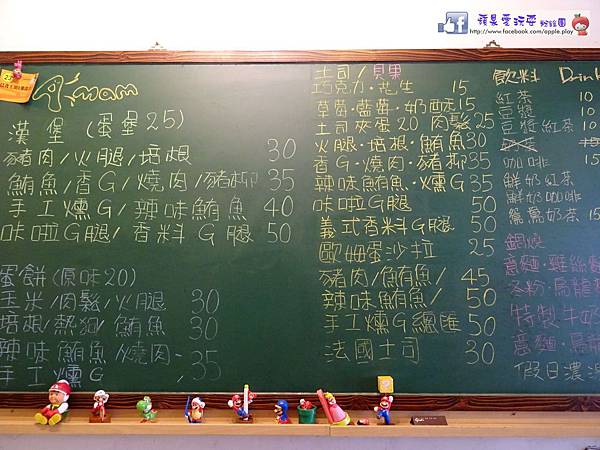 蘋果愛玩耍 粉絲團
http://www.facebook.com/apple.play
23
A mam
漢堡 (蛋堡25)
豬肉/火腿/培根 30
鮪魚/香G/燒肉/豬柳 35
手工燻G/辣味鮪魚 40
咔啦G腿/香料G腿 50
蛋餅 (原味20)
玉米/肉鬆/火腿 30
培根/熱狗/鮪魚 30
辣味鮪魚/燒肉·
手工燻G 35
土司/貝果
巧克力·花生 15
草莓·藍莓·奶酥15
土司夾蛋20 肉鬆25
火腿·培根·鮪魚30
香G·燒肉·豬柳35
辣味鮪魚·燻G35
咔啦G腿 50
義式香料G腿 50
歐姆蛋沙拉 25
豬肉/鮪魚/ 45
辣味鮪魚/ 50
手工燻G總匯 50
法國土司 30
飲料 Drink
紅茶 10
豆漿 10
豆漿紅茶 10
咖啡 15
鮮奶紅茶
鮮奶咖啡
薏仁奶茶 15
鍋燒
意麵·雞絲麵
冬粉·烏龍
特製牛奶
意麵·烏龍
假日濃湯